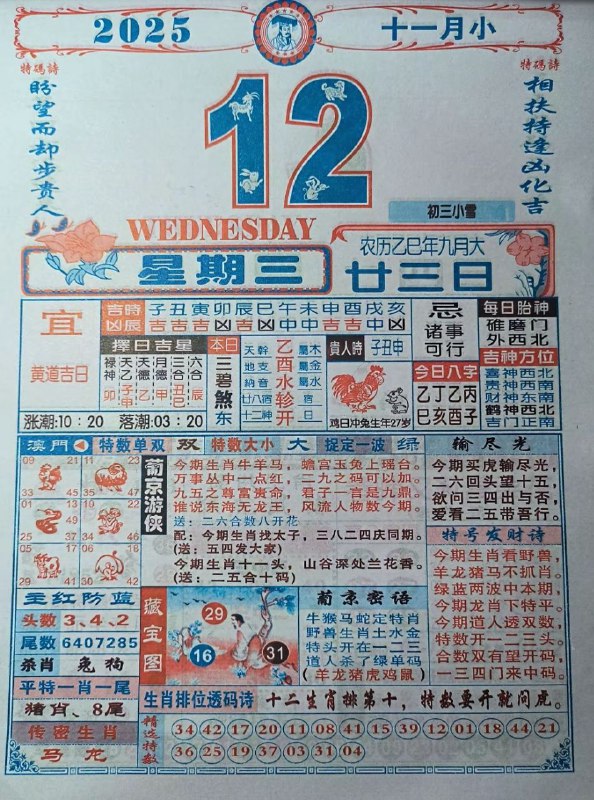 2025
十一月小
特碼詩
盼望而却步贵人
12
特碼詩
相扶持逢凶化吉
初三小雪
WEDNESDAY
星期三
农历乙巳年九月大
廿三日
宜
黄道吉日
涨潮:10:20 落潮:03:20
吉時凶辰
子丑寅卯辰巳午未申酉戌亥
擇日吉星
禄神 天乙 天德 月德 三合 六合
本日
三碧煞东
天幹 地支 納音 廿八宿 十二神
乙酉水軫开
屬木 屬金 屬水 宿 日
貴人時
子丑申
鸡日冲兔生年27岁
忌
诸事可行
今日八字
乙丁乙丙
巳亥酉子
每日胎神
碓磨门
外西北
吉神方位
喜神西北
贵神西南
财神东南
鹤神西北
吉门正南
澳門 特数单双 双 特数大小 大 捉定一波 绿
09 21 33 45
11 23 35 47
01 37 49
04 16 28 40
05 17 29 41
葡京游侠
今期生肖牛羊马，蟾宫玉兔上瑶台。
万事丛中一点红，二九之码可以加。
九五之尊富贵命，君子一言是九鼎。
谁说东海无龙王，风流人物数今期。
送：二六合数八开花
配：今期生肖找太子，三八二四庆同期。
(送：五四发大家)
今期生肖十一头，山谷深处兰花香。
(送：二五合十码)
输尽光
今期买虎输尽光，
二六回头望十五，
欲问三四出与否，
爱看二五带吾行。
特号发财诗
今期生肖看野兽，
羊龙猪马不抓肖。
绿蓝两波中本期，
今期龙肖下特平。
今期道人透双数，
特数开一二三头。
合数双有望开码，
一三四门来中码。
主红防蓝
头数 3、4、2
尾数 6407285
杀肖 兔狗
平特一肖一尾
猪肖、8尾
传密生肖
马龙
藏宝图
29
16
31
葡京密语
牛猴马蛇定特肖
野兽生肖土水金
特头开在一二三
道人杀了绿单码
(羊龙猪虎鸡鼠)
生肖排位透码诗
十二生肖排第十，特数要开就问虎。
精选特数
34 42 17 20 11 02 43 39 12 13 01 18 44 21
36 25 29 37 03 31 04